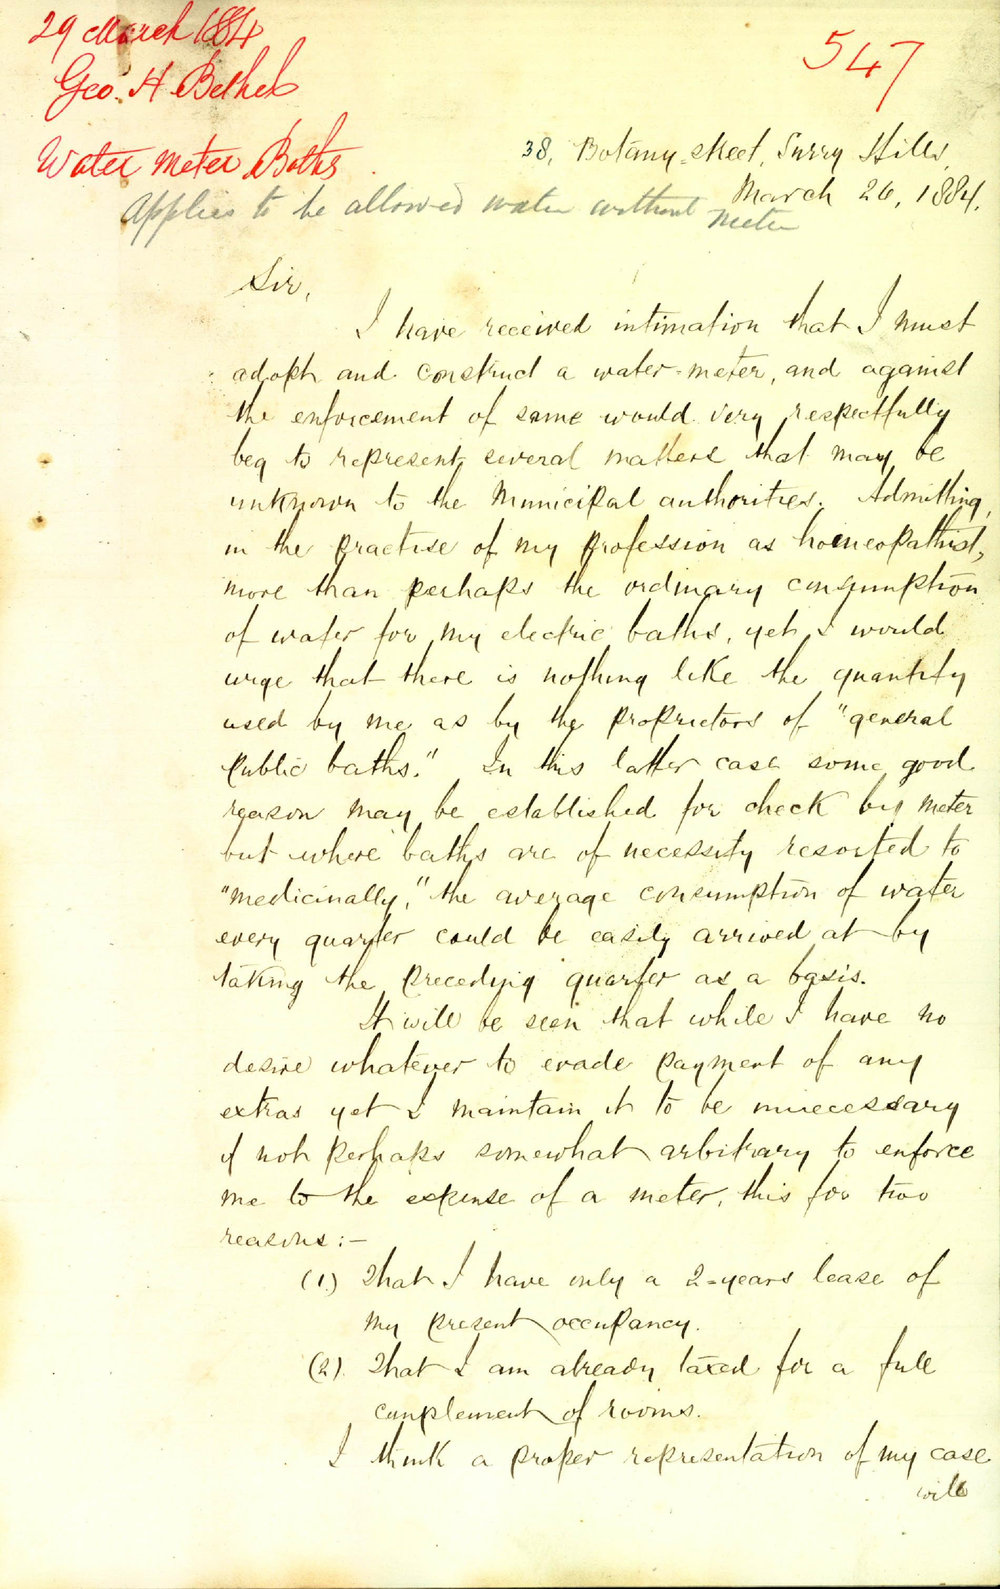 29 March 1884
547
Geo. H. Bethel
Water Meter Baths
38, Botany-street, Surry Hills,
March 26, 1884.
Applies to be allowed water without meter
Sir,
I have received intimation that I must
adopt and construct a water-meter, and against
the enforcement of same would very respectfully
beg to represent several matters that may be
unknown to the Municipal authorities. Admitting,
in the practise of my profession as homeopathist,
more than perhaps the ordinary consumption
of water for my electric baths, yet I would
urge that there is nothing like the quantity
used by me as by the proprietors of "general
public baths." In this latter case some good
reason may be established for check by meter
but where baths are of necessity resorted to
"medicinally," the average consumption of water
every quarter could be easily arrived at by
taking the preceding quarter as a basis.
It will be seen that while I have no
desire whatever to evade payment of any
extras yet I maintain it to be unnecessary
if not perhaps somewhat arbitrary to enforce
me to the expense of a meter, this for two
reasons:-
(1) That I have only a 2-years lease of
my present occupancy.
(2). That I am already taxed for a full
complement of rooms.
I think a proper representation of my case
will